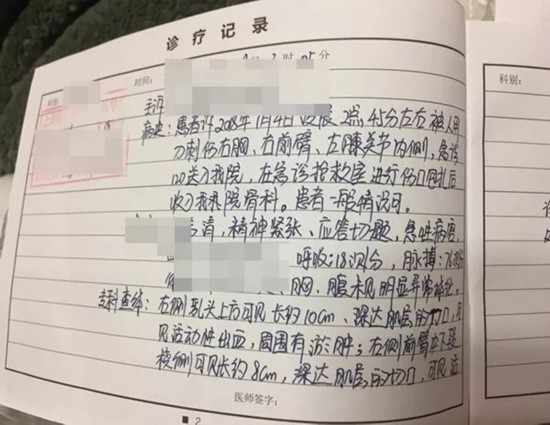 诊疗记录
科别:
时间:
时 05分
科别:
主诉
病史:患者诉2018年1月4日凌晨2点45分左右被人用
刀刺伤右胸、右前臂、左膝关节内侧,急诊
120送入我院,在急诊抢救室进行伤口包扎后
收入我院骨科。患者一般情况可。
清,精神紧张、应答切题,急性病容,
呼吸:18次/分,脉搏:76次/分
胸、腹未见明显异常体征。
专科查体:右侧乳头上方可见长约10cm、深达肌层的切口,可
见活动性出血,周围有淤肿;右侧前臂中下段
桡侧可见长约8cm,深达肌层的切口,可见活
医师签字:
■ 2